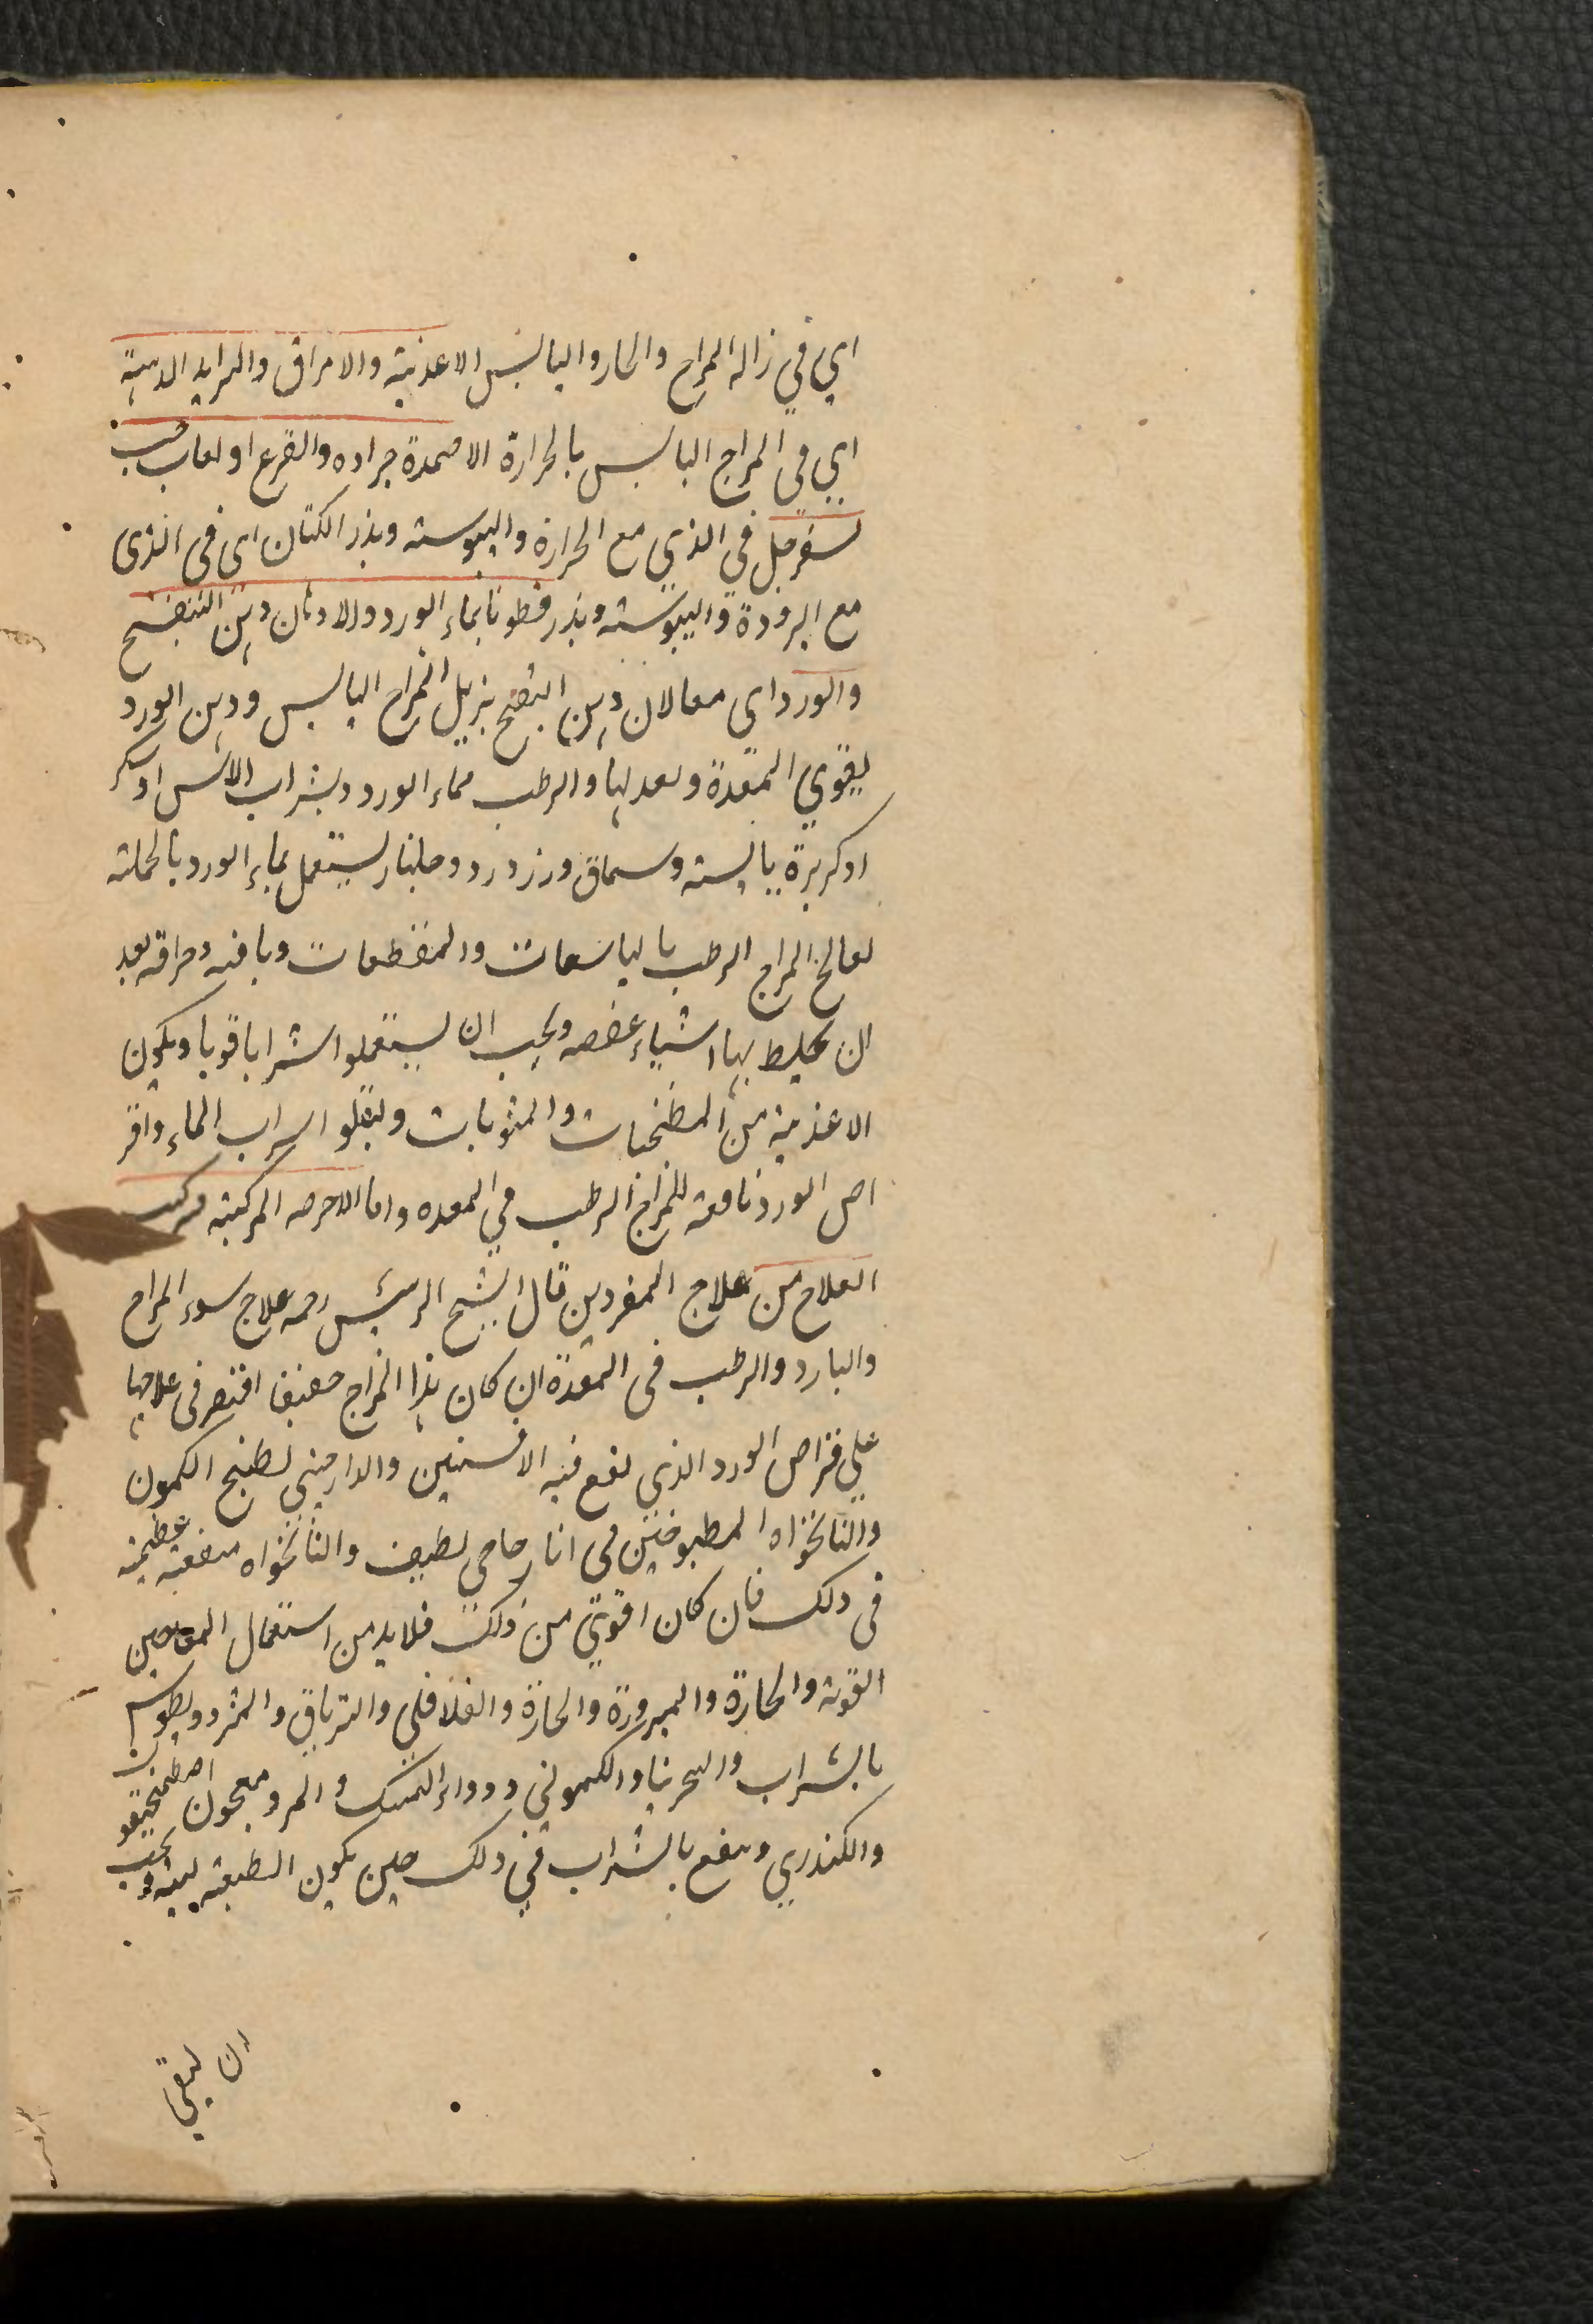 اي في زالة المزاج والحار واليابس الاغذية والامراق والثرايد الدهنية
اي في المزاج اليابس بالحرارة الاضمدة جراده والقرع او لعاب حب
سفرجل في الذي مع الحرارة واليبوسته وبذر الكتان اى فى الذى
مع البرودة واليبوسته وبذر قطونا بماء الورد والادهان دهن البنفسج
والورد اى معا لان دهن البنفسج يزيل المزاج اليابس ودهن الورد
يقوي المعدة ويعدلها والرطب بماء الورد وبشراب الاس او سكر
او كزبرة يابسته وسماق وزر ورد وجلنار يستعمل بماء الورد بالجملته
يعالج المزاج الرطب بالياسعات والمقطعات وبافيه وحراقه بعد
ان يخلط بها اشياء عفصه ويجب ان يستعملوا شرابا قويا ويكون
الاغذية من المطنجنات والمشويات ويقلو اسراب الماء واقر
اص الورد نافعته للمزاج الرطب في المعده واما الامزجه المركبته فركب
العلاج من علاج المفردين قال الشيخ الرئيس رحمه علاج سوء المزاج
والبارد والرطب فى المعدة ان كان هذا المزاج ضعيفا اقتصر فى علاجها
على قراص الورد الذي يقع فيه الافسنتين والدارصيني بطبخ الكمون
والنانخواه المطبوخين فى انار حامي لطيف والنانخواه منفعته عظيمة
فى دلك فان كان اقوي من ذلك فلابد من استعمال المعاجين
القوته والحارة والمبرورة والحارة والفلافلي والترياق والمثرود يطوس
بالشراب والسجرنيا والكموني ودواء المسك والمر ومعجون اصطمخيقون
والكندري وينفع بالشراب في دلك حين يكون الطبيعته لينته ويجب
ان يبقي